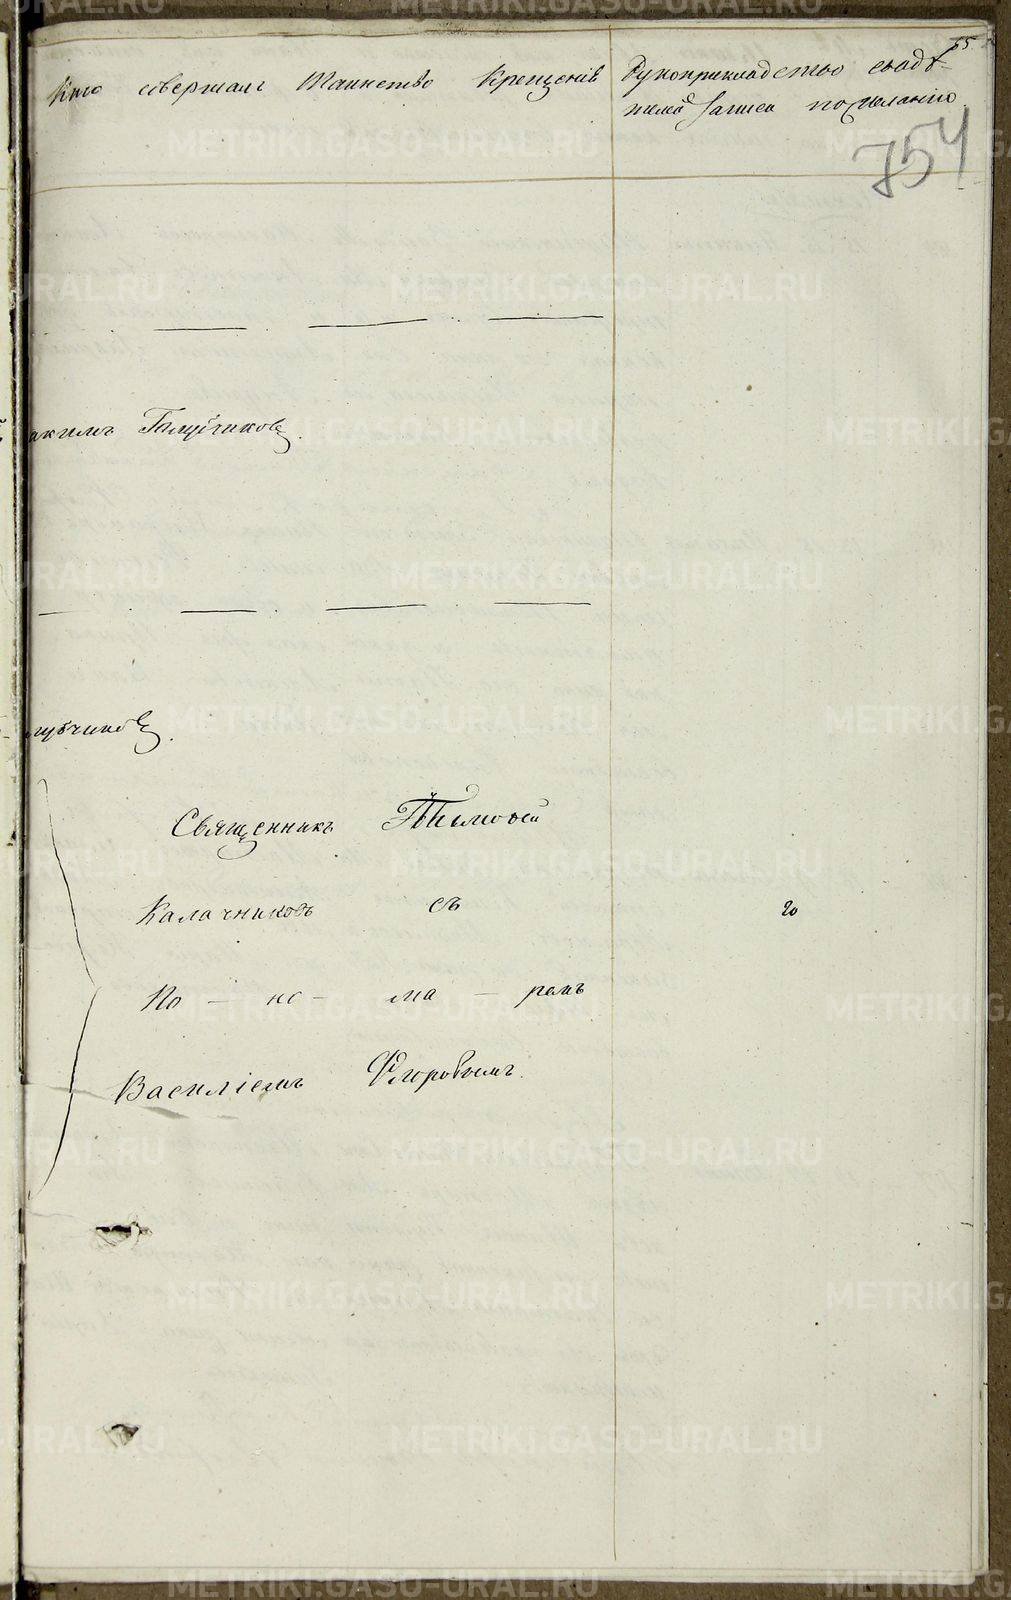 Кто совершалъ Таинство Крещенія
Рукоприкладство свидѣ-
телей записи по желанію
55
754
акимъ Голубчиковъ.
лубчиковъ.
Священникъ Тимофей
Калачниковъ съ
20
По – но – ма – ремъ
Василіемъ Флоровымъ.
METRIKI.GASO-URAL.RU